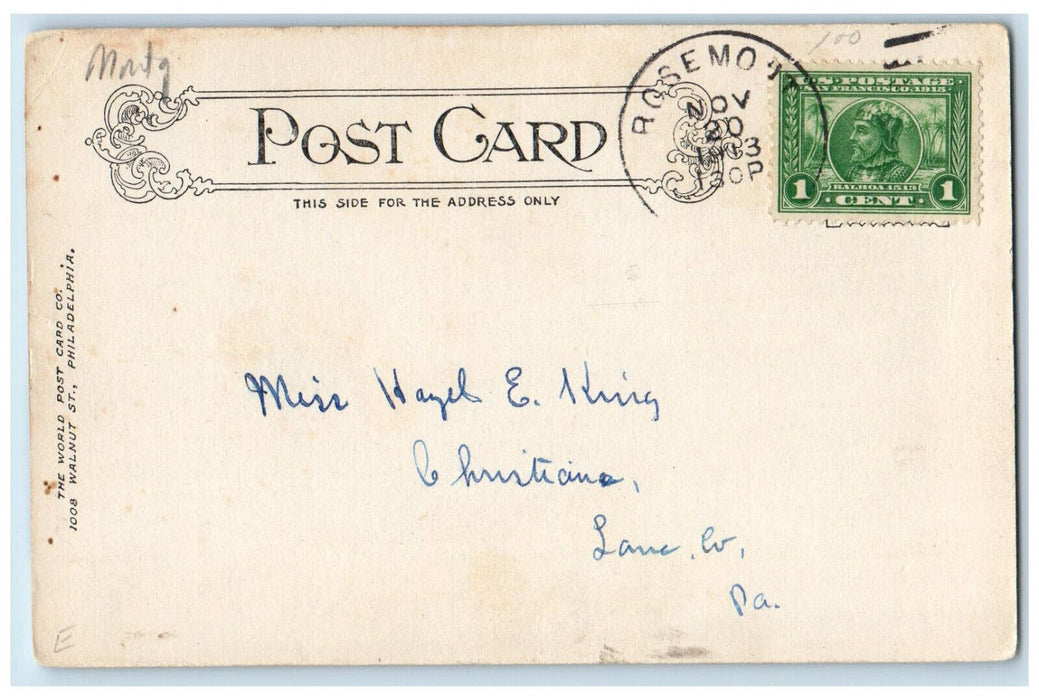 Montg
100
POST CARD
THIS SIDE FOR THE ADDRESS ONLY
ROSEMONT
NOV
20
1913
30P
U.S. POSTAGE
SAN FRANCISCO, 1915
BALBOA 1513
1 CENT 1
THE WORLD POST CARD CO.
1008 WALNUT ST., PHILADELPHIA.
Miss Hazel E. King
Christiana,
Lanc. Co,
Pa.
E